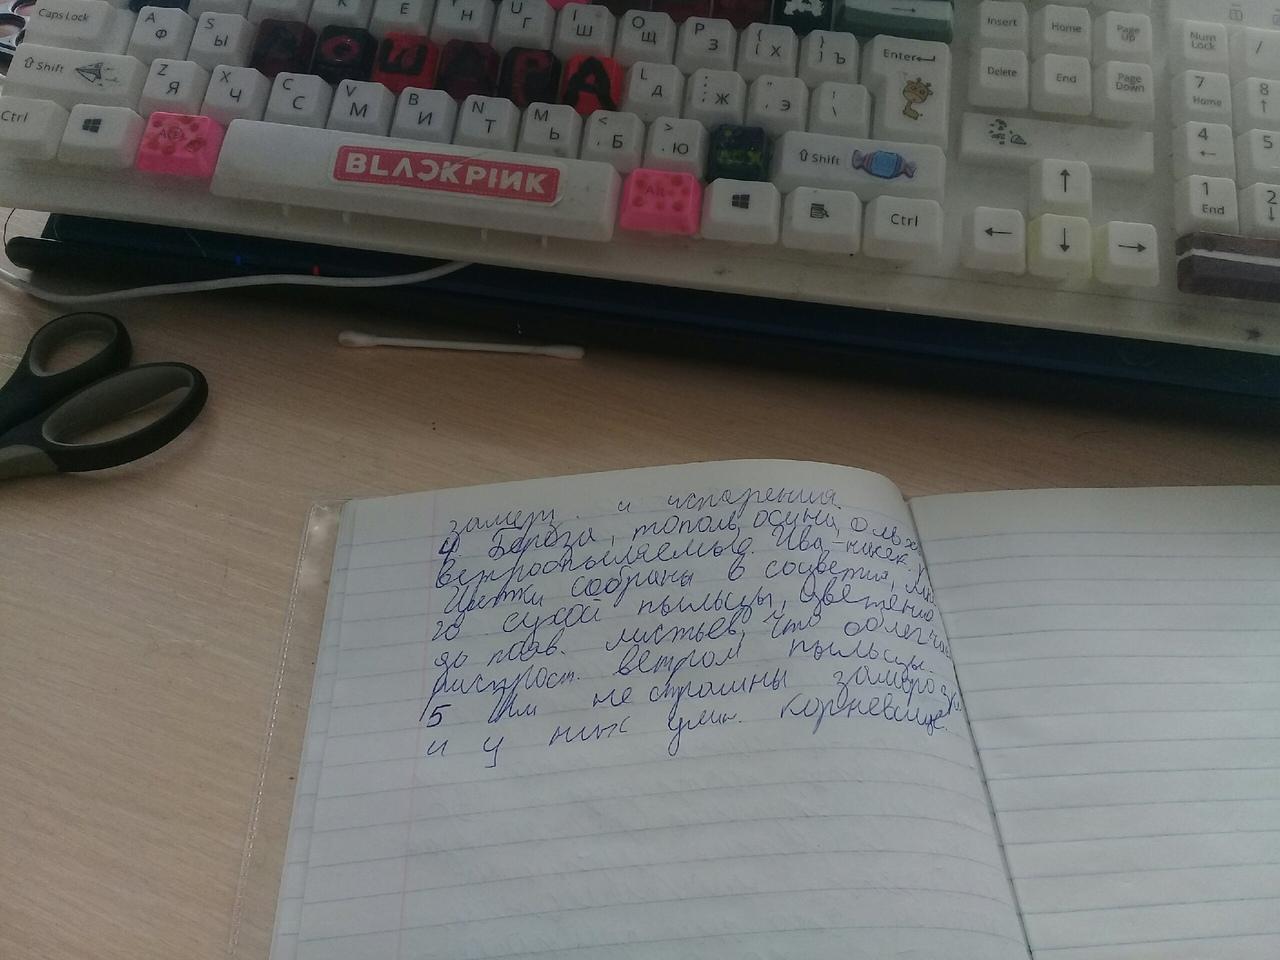 Caps Lock A Ф S Ы E К H U Г I Ш O Щ P З { Х } Ъ Enter Insert Home Page Up Num Lock /
Shift Z Я X Ч C С V М B И N Т M Ь < Б > Ю L Д : ; Ж " ' Э | \ Delete End Page Down 7 Home 8
Ctrl Alt BLACKPINK Alt Shift Ctrl 4 5 1 End 2
замерз. и испарения.
4 Береза, тополь, осина, ольха
ветроопыляемые. Ива -
Цветки собраны в соцветия,
го сухой пыльцы, цветение
до появ. листьев, что облегчает
распрост. ветром пыльцы.
5 Им не страшны заморозки
и у них корневище.